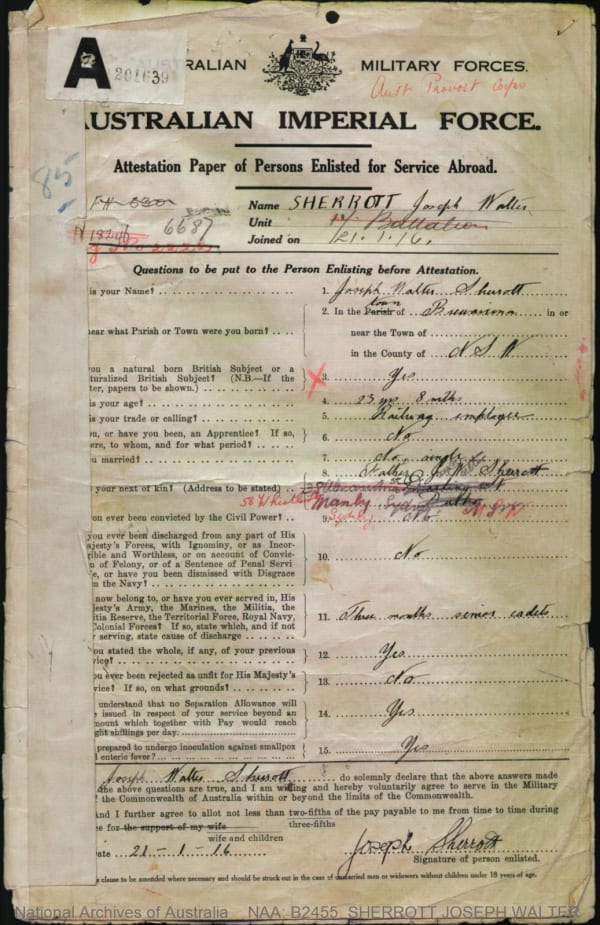 A
201639
AUSTRALIAN MILITARY FORCES.
Aust Provost Corps
AUSTRALIAN IMPERIAL FORCE.
Attestation Paper of Persons Enlisted for Service Abroad.
85
6687
Name SHERROTT Joseph Walter
Unit Battalion
Joined on 21.1.16.
Questions to be put to the Person Enlisting before Attestation.
is your Name? 1. Joseph Walter Sherrott
town
2. In the Parish of in or
near what Parish or Town were you born? near the Town of
in the County of N S W
you a natural born British Subject or a
turalized British Subject? (N.B.—If the 3. Yes
ter, papers to be shown.)
is your age? 4. 23 yrs 8 mths
is your trade or calling? 5. Railway employee
ou, or have you been, an Apprentice? If so, 6. No
ere, to whom, and for what period?
u married? 7. No, single
8. Father J. W. Sherrott
your next of kin? (Address to be stated)
Manly Sydney
ou ever been convicted by the Civil Power? 9. No
you ever been discharged from any part of His
ajesty's Forces, with Ignominy, or as Incor-
rible and Worthless, or on account of Convic-
n of Felony, or of a Sentence of Penal Servi 10. No
e, or have you been dismissed with Disgrace
m the Navy?
now belong to, or have you ever served in, His
esty's Army, the Marines, the Militia, the
itia Reserve, the Territorial Force, Royal Navy, 11. Three months senior cadets
Colonial Forces? If so, state which, and if not
serving, state cause of discharge
ou stated the whole, if any, of your previous 12. Yes
vice?
u ever been rejected as unfit for His Majesty's 13. No
vice? If so, on what grounds?
understand that no Separation Allowance will
issued in respect of your service beyond an 14. Yes
mount which together with Pay would reach
ght shillings per day.
prepared to undergo inoculation against smallpox 15. Yes
d enteric fever?
Joseph Walter Sherrott do solemnly declare that the above answers made
the above questions are true, and I am willing and hereby voluntarily agree to serve in the Military
the Commonwealth of Australia within or beyond the limits of the Commonwealth.
And I further agree to allot not less than two-fifths of the pay payable to me from time to time during
three-fifths
e for the support of my wife
wife and children
ate 21-1-16 Joseph Sherrott
Signature of person enlisted.
s clause to be amended where necessary and should be struck out in the case of unmarried men or widowers without children under 18 years of age.
National Archives of Australia NAA: B2455, SHERROTT JOSEPH WALTER